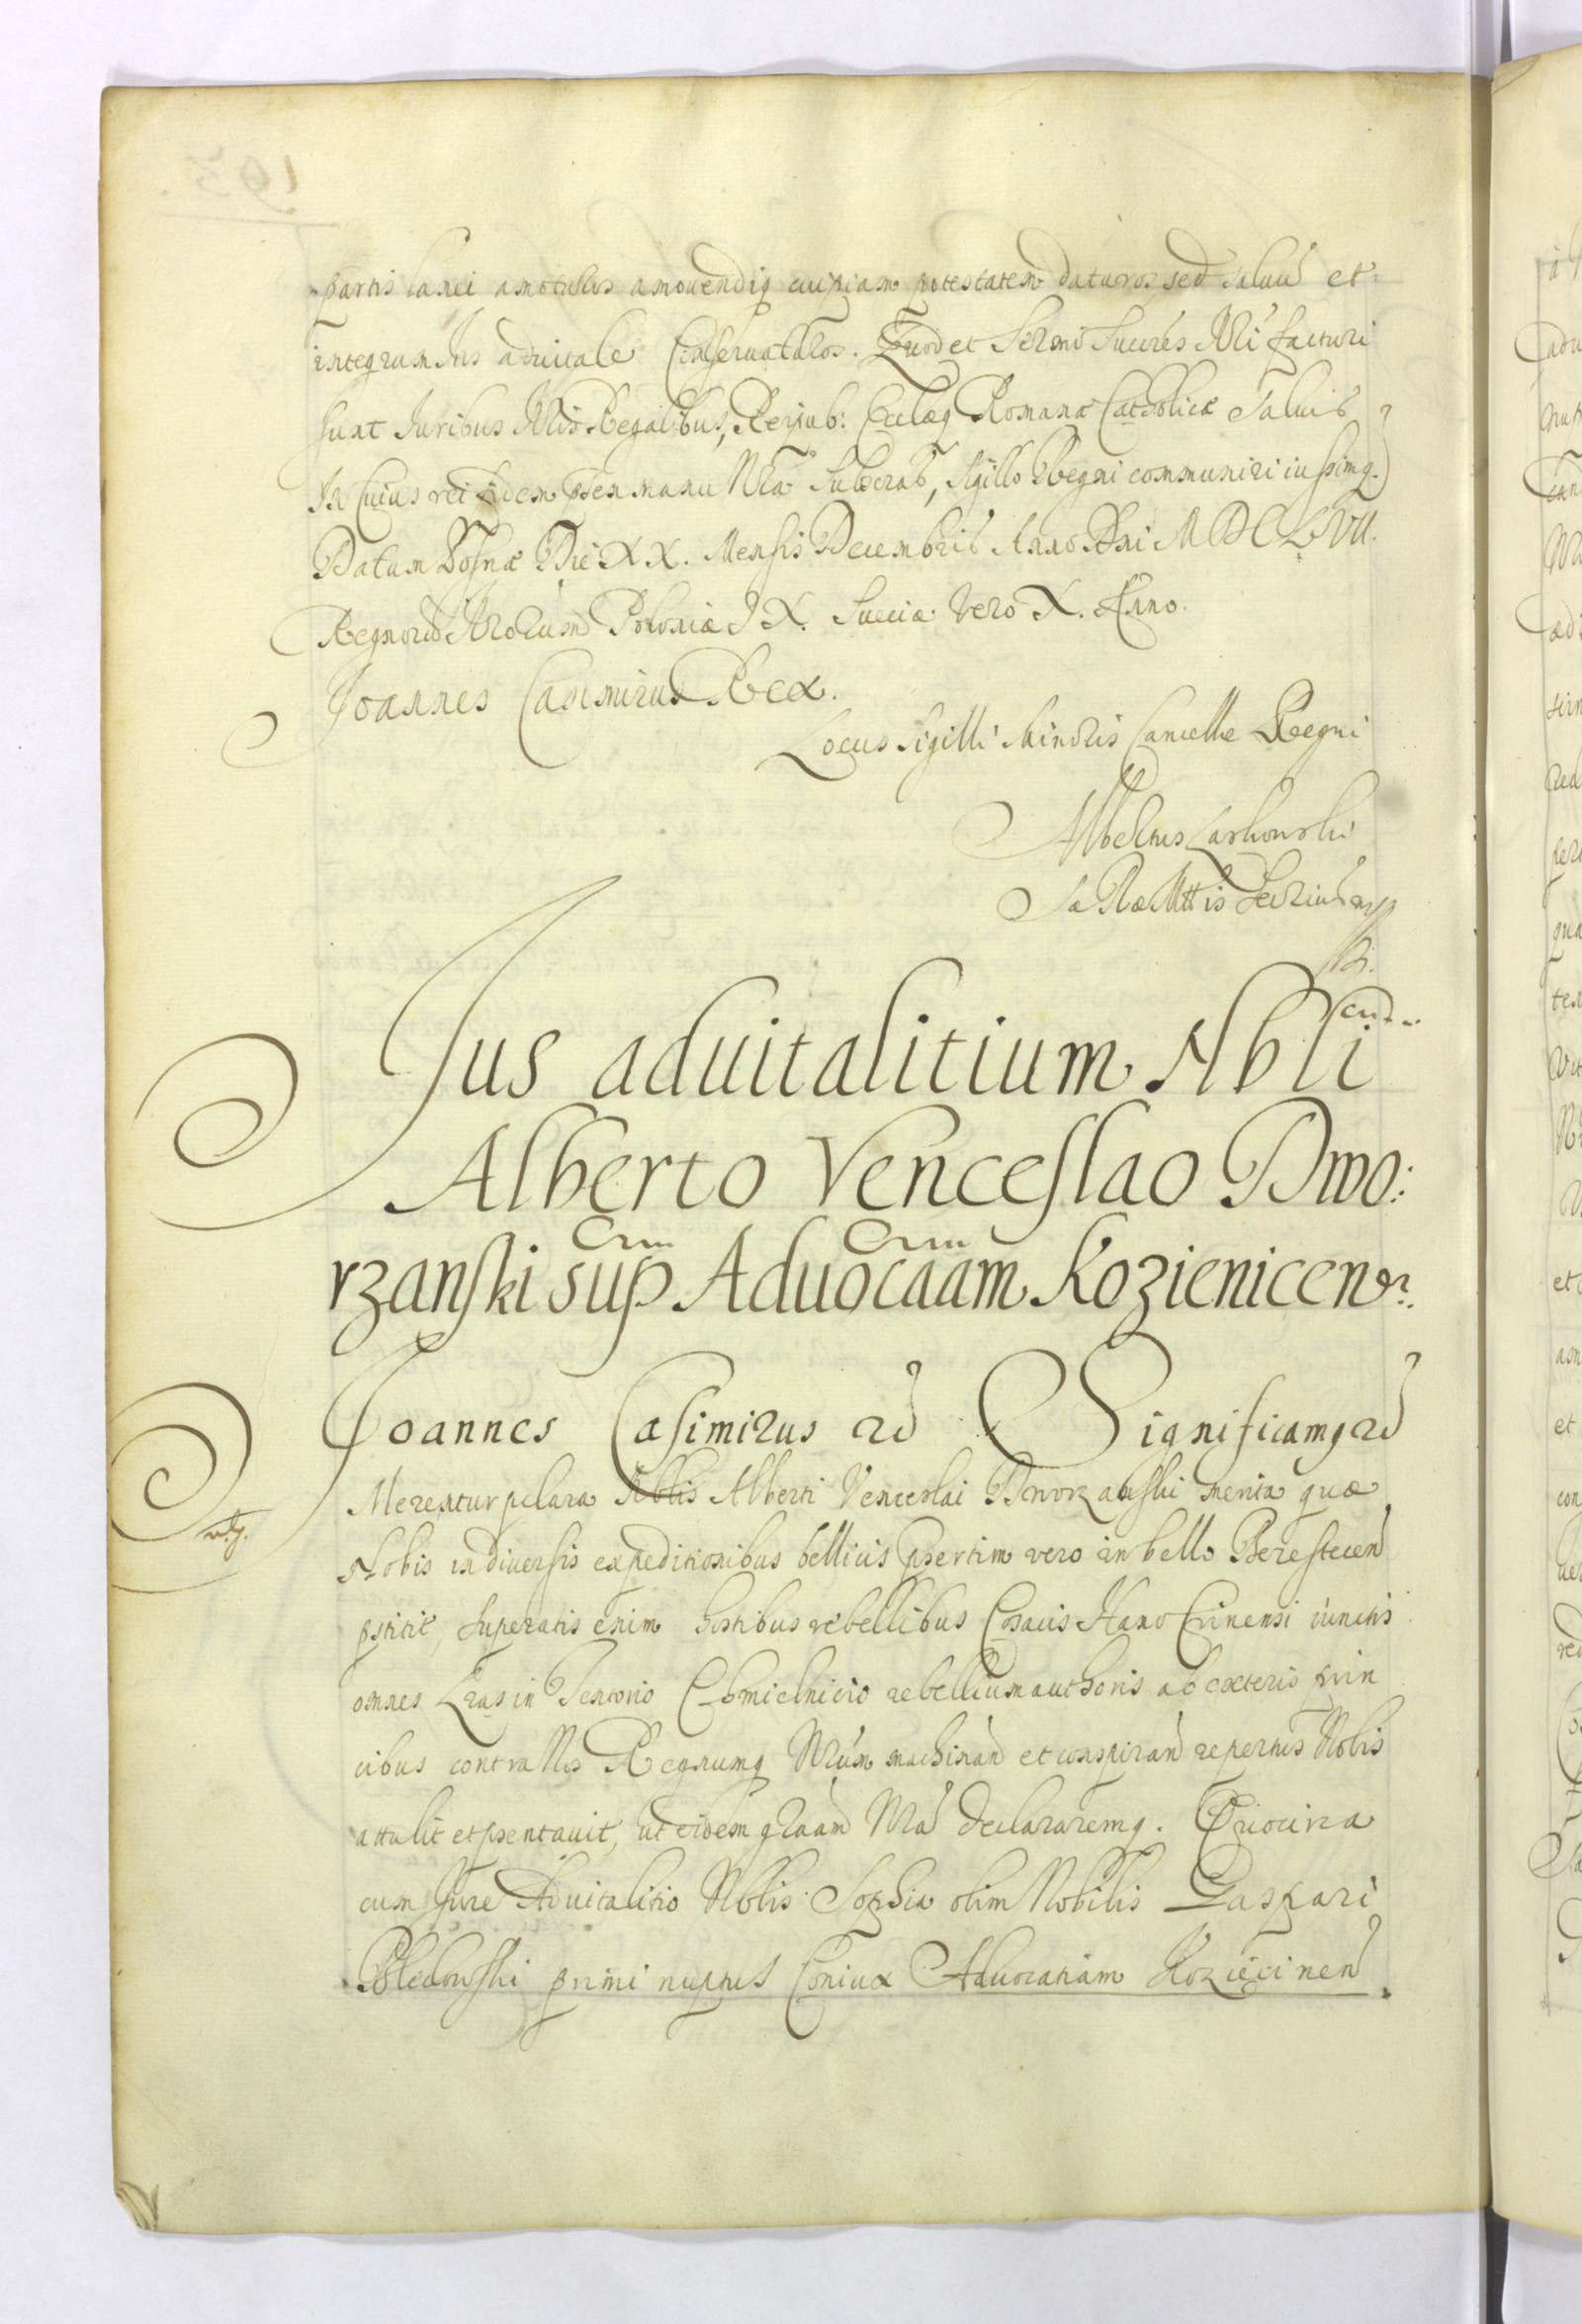 partis lanei amoturos amovendiq cuipiam potestatem daturos, sed salvu et
integrum Ius advitale Conservaturos. Quod et Sermi Succres Nri facturi
sunt Iuribus Nris Regalibus, Reipub: Ecclaeq Romanae Catholicae Salvis
In Cuius rei fidem psen manu Nra Subscrab, Sigillo Regni communiri iussimq.
Datum Posnae Die XX. Mensis Decembris Anno Dni MDCLVII.
Regnoru Nrorum Poloniae IX. Sueciae Vero X. Anno.
Joannes Casimirus Rex.
Locus Sigilli Minoris Cancellae Regni
Albertus Laskowski
Sa Rae Mttis Secrius mp
Jus advitalitium Nbli
Alberto Venceslao Dwo:
rzanski sup Advocaam Kozienicen.
Joannes Casimirus &c Significamq &c
Merentur pclara Nblis Alberti Venceslai Dworzanski merita quae
Nobis in diversis expeditionibus bellicis psertim vero in bello Berestecen
pstitit, superatis enim hostibus rebellibus Cosacis Hano Crimensi iunctis
omnes Lras in Tentorio Chmielnicio rebellium authoris ab exteris prin
cibus contra Nos Regnumq Nrum machinan et conspiran repertus Nobis
attulit et psentavit, ut eidem graam Nra declararemq. Quocirca
cum Jure Advitalitio Nblis Sophia olim Nobilis Gaspari
primi nuptus Coniux Advocatiam